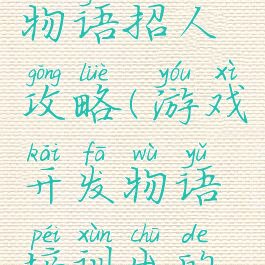 物语招人
gōng lüè yóu xì
攻略(游戏
kāi fā wù yǔ
开发物语
péi xùn chū de
培训出的